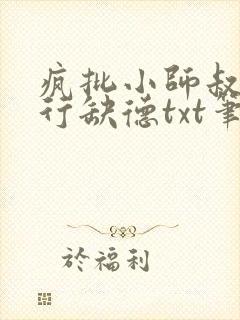 疯批小師叔
行缺德txt筆
於福利